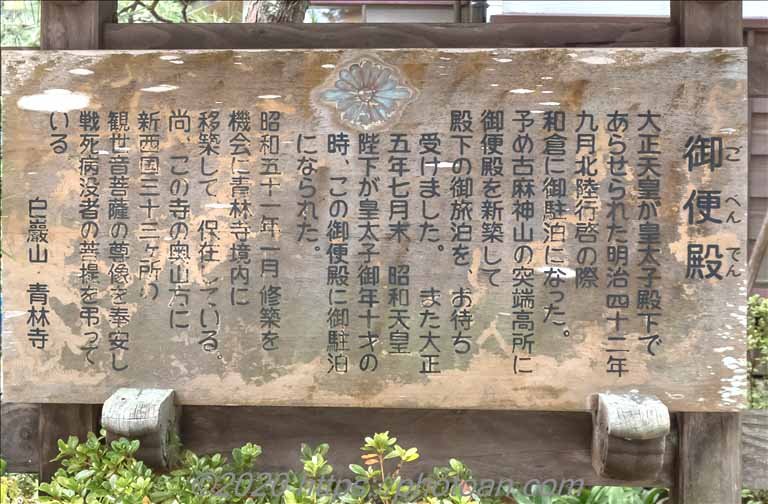 御便殿
ごべんでん
大正天皇が皇太子殿下で
あらせられた明治四十二年
九月北陸行啓の際
和倉に御駐泊になった。
予め古麻神山の突端高所に
御便殿を新築して
殿下の御旅泊を、お待ち
受けました。 また大正
五年七月末、昭和天皇
陛下が皇太子御年十才の
時、この御便殿に御駐泊
になられた。
昭和五十一年一月修築を
機会に青林寺境内に
移築して 保在している。
尚、この寺の奥山方に
新西国三十三ヶ所の
観世音菩薩の尊像を奉安し
戦死病没者の菩提を弔って
いる
白巖山 青林寺
©2020 https://photoan.com